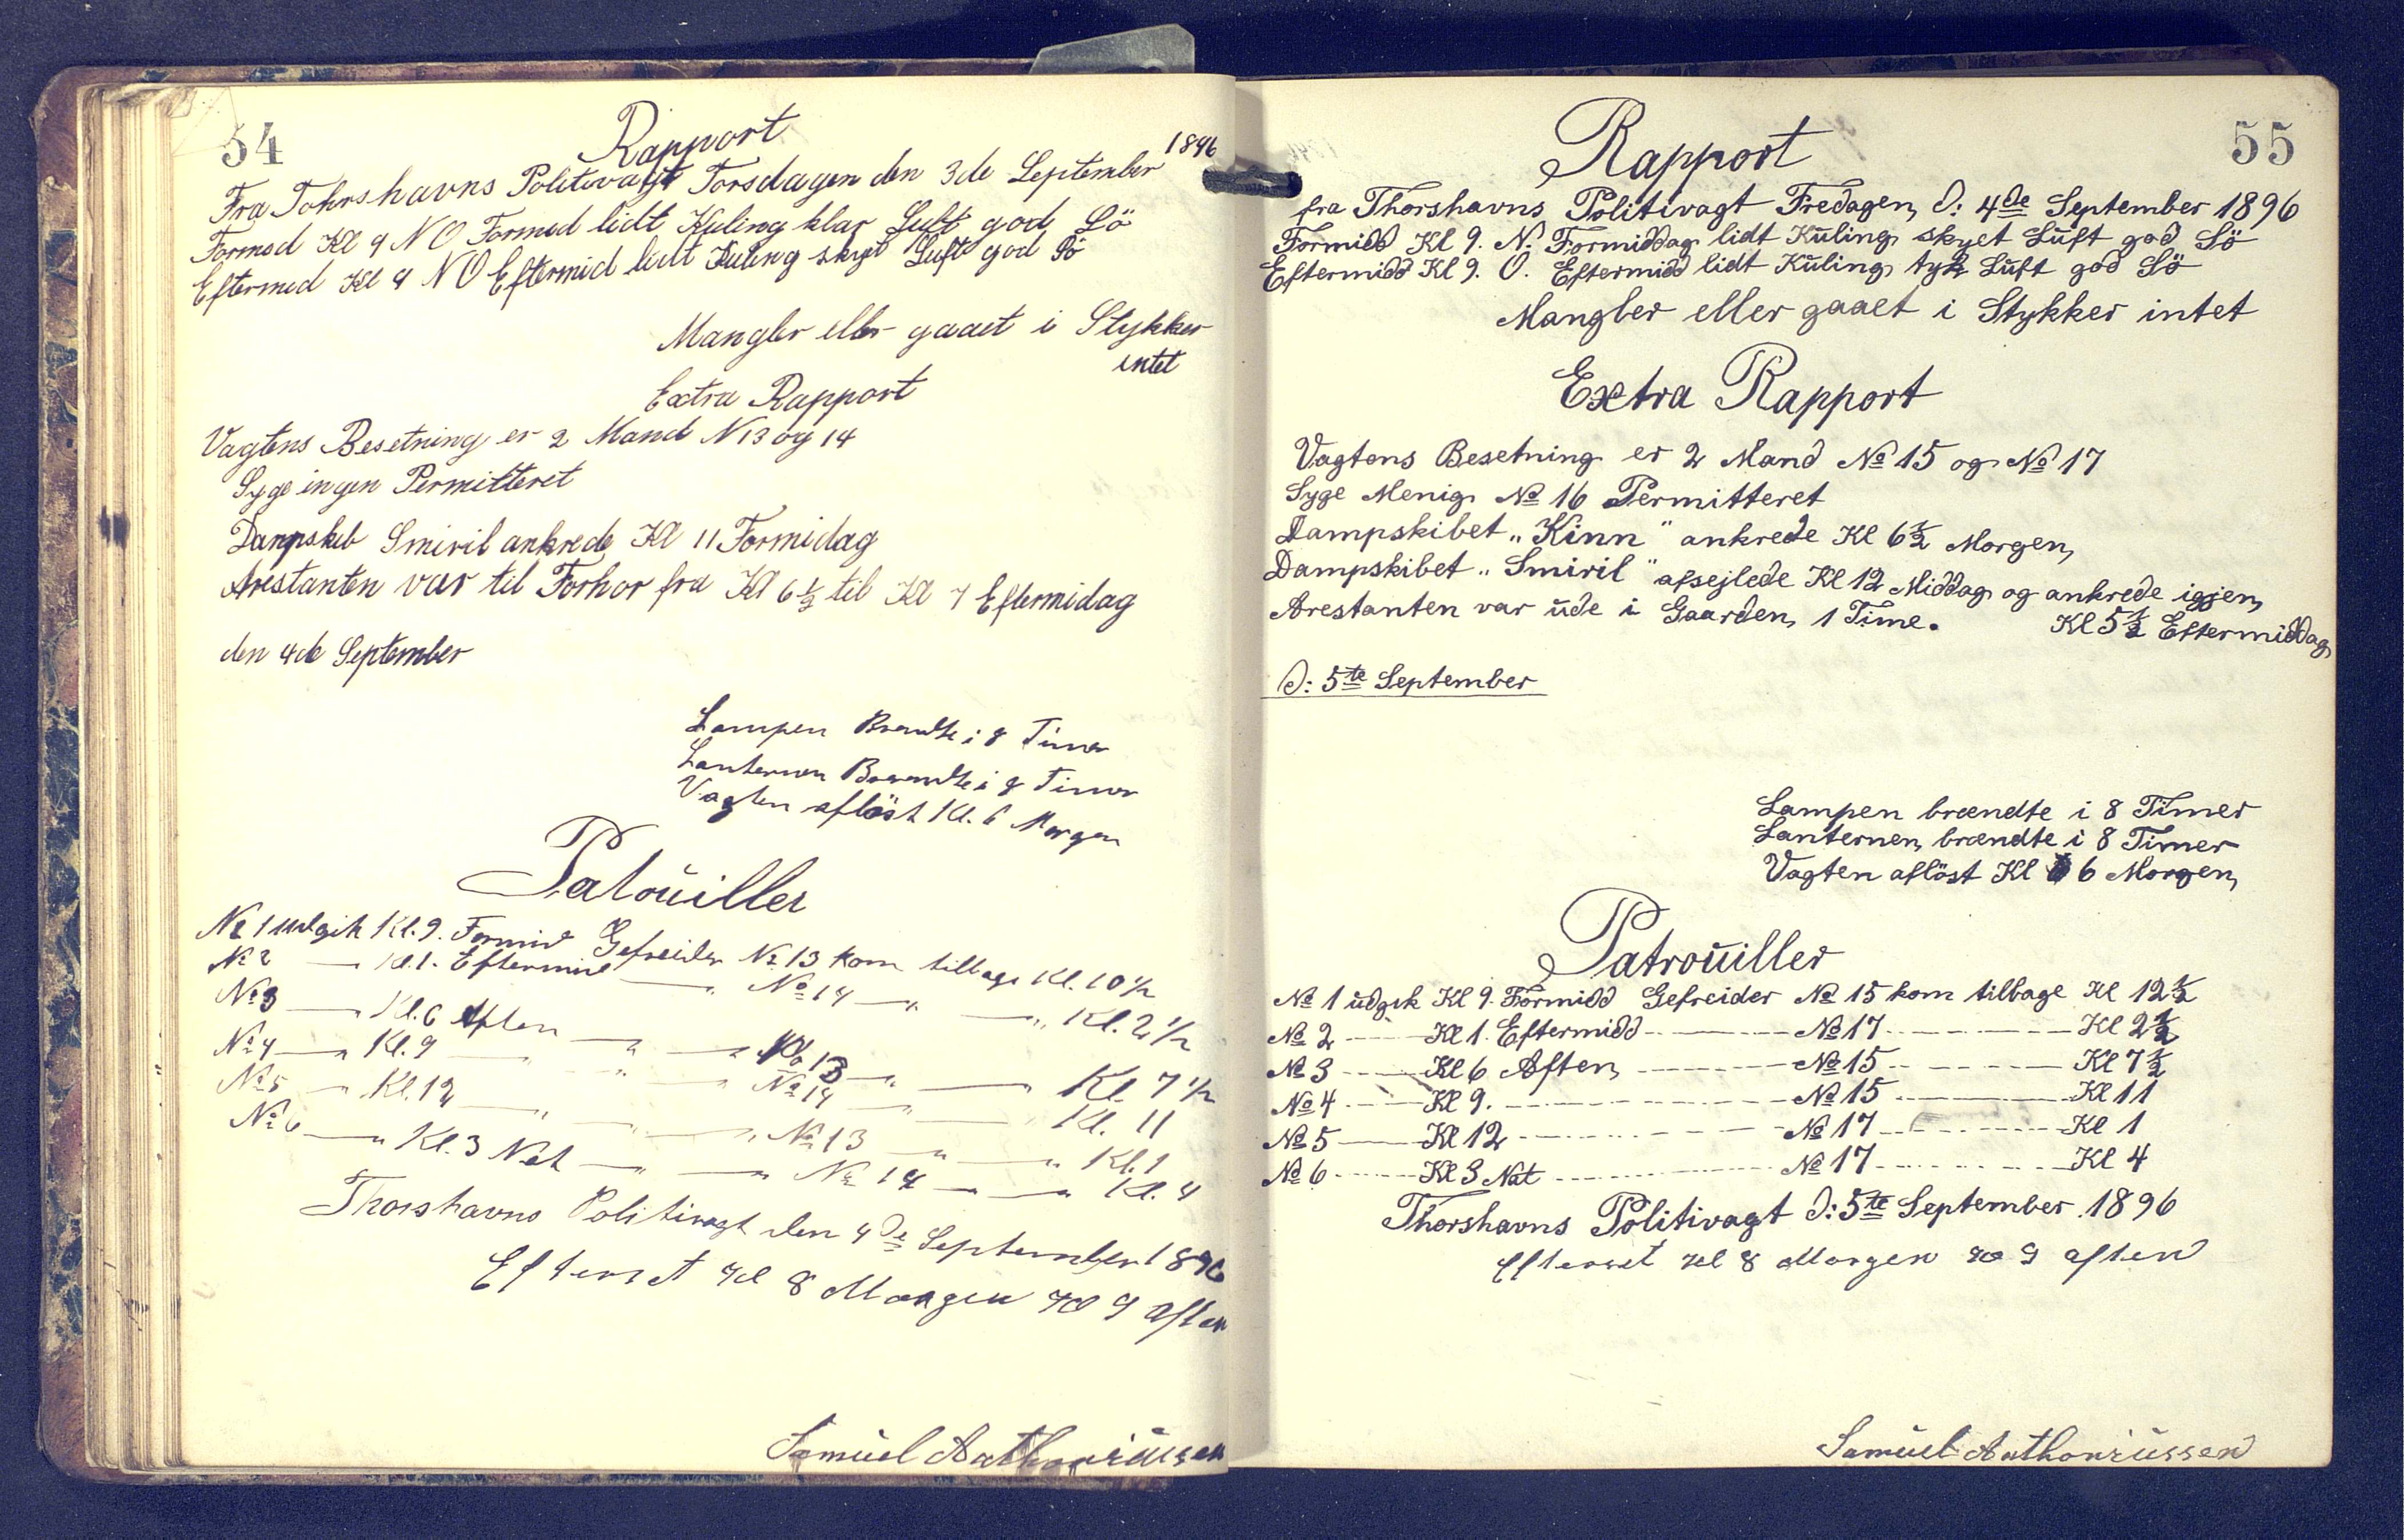 54
Rapport
1896
Fra Tohrshavns Politivagt Torsdagen den 3de September
Formed Kl 9 NO Formed lidt Kuling klar Luft god Sö
Eftermed Kl 9 NO Eftermid lidt Kuling skyet Luft god Sö
Mangler eller gaaet i Stykker
intet
Extra Rapport
Vagtens Besetning er 2 Mand N 13 og 14
Syge ingen Permitteret
Dampskib Smiril ankrede Kl 11 Formidag
Arestanten var til Forhor fra Kl 6 1/2 til Kl 7 Eftermidag
den 4de September
Lampen Brendte i 8 Timer
Lanternen Brendte i 8 Timer
Vagten aflöst Kl. 6 Morgen
Patouiller
No 1 udgik Kl. 9. Formid Gefreider No 13 kom tilbage Kl. 10 1/2
No 2 — Kl. 1. Eftermid — " No 14 — " — " Kl. 2 1/2
No 3 — Kl. 6 Aften — " — " No 13 — " — " Kl. 7 1/2
No 4 — " Kl. 9 — " " — " No 14 — " — " Kl. 11
No 5 — " Kl. 12 — " " — " No 13 — " — " Kl. 1
No 6 — " Kl. 3 Nat — " — " No 14 — " — " Kl. 4
Thorshavns Politivagt den 4de September 1896
Efterset Kl 8 Morgen Kl 9 aften
Samuel Anthoniussen
55
Rapport
fra Thorshavns Politivagt Fredagen, d: 4de September 1896
Formidd Kl 9. N. Formiddag lidt Kuling, skyet Luft god Sö
Eftermidd Kl 9. O. Eftermidd lidt Kuling, tyk Luft god Sö
Mangler eller gaaet i Stykker intet
Extra Rapport
Vagtens Besetning er 2 Mand No 15 og No 17
Syge Menig No 16 Permitteret
Dampskibet „Kinn" ankrede Kl 6 1/2 Morgen,
Dampskibet „Smiril" afsejlede Kl 12 Middag og ankrede igjen,
Kl 5 1/2 Eftermiddag,
Arestanten var ude i Gaarden, 1 Time.
d: 5te September
Lampen brændte i 8 Timer
Lanternen, brændte i 8 Timer
Vagten aflöst Kl 6 Morgen,
Patrouiller
No 1 udgik Kl 9. Formidd Gefreider No 15 kom tilbage Kl 12 1/2
No 2 — Kl 1. Eftermidd — No 17 — Kl 2 1/2
No 3 — Kl 6 Aften, — No 15 — Kl 7 1/2
No 4 — Kl 9. — No 15 — Kl 11
No 5 — Kl 12 — No 17 — Kl 1
No 6 — Kl 3 Nat — No 17 — Kl 4
Thorshavns Politivagt d: 5te September. 1896
Efterset Kl 8 Morgen Kl 9 aften
Samuel Anthoniussen